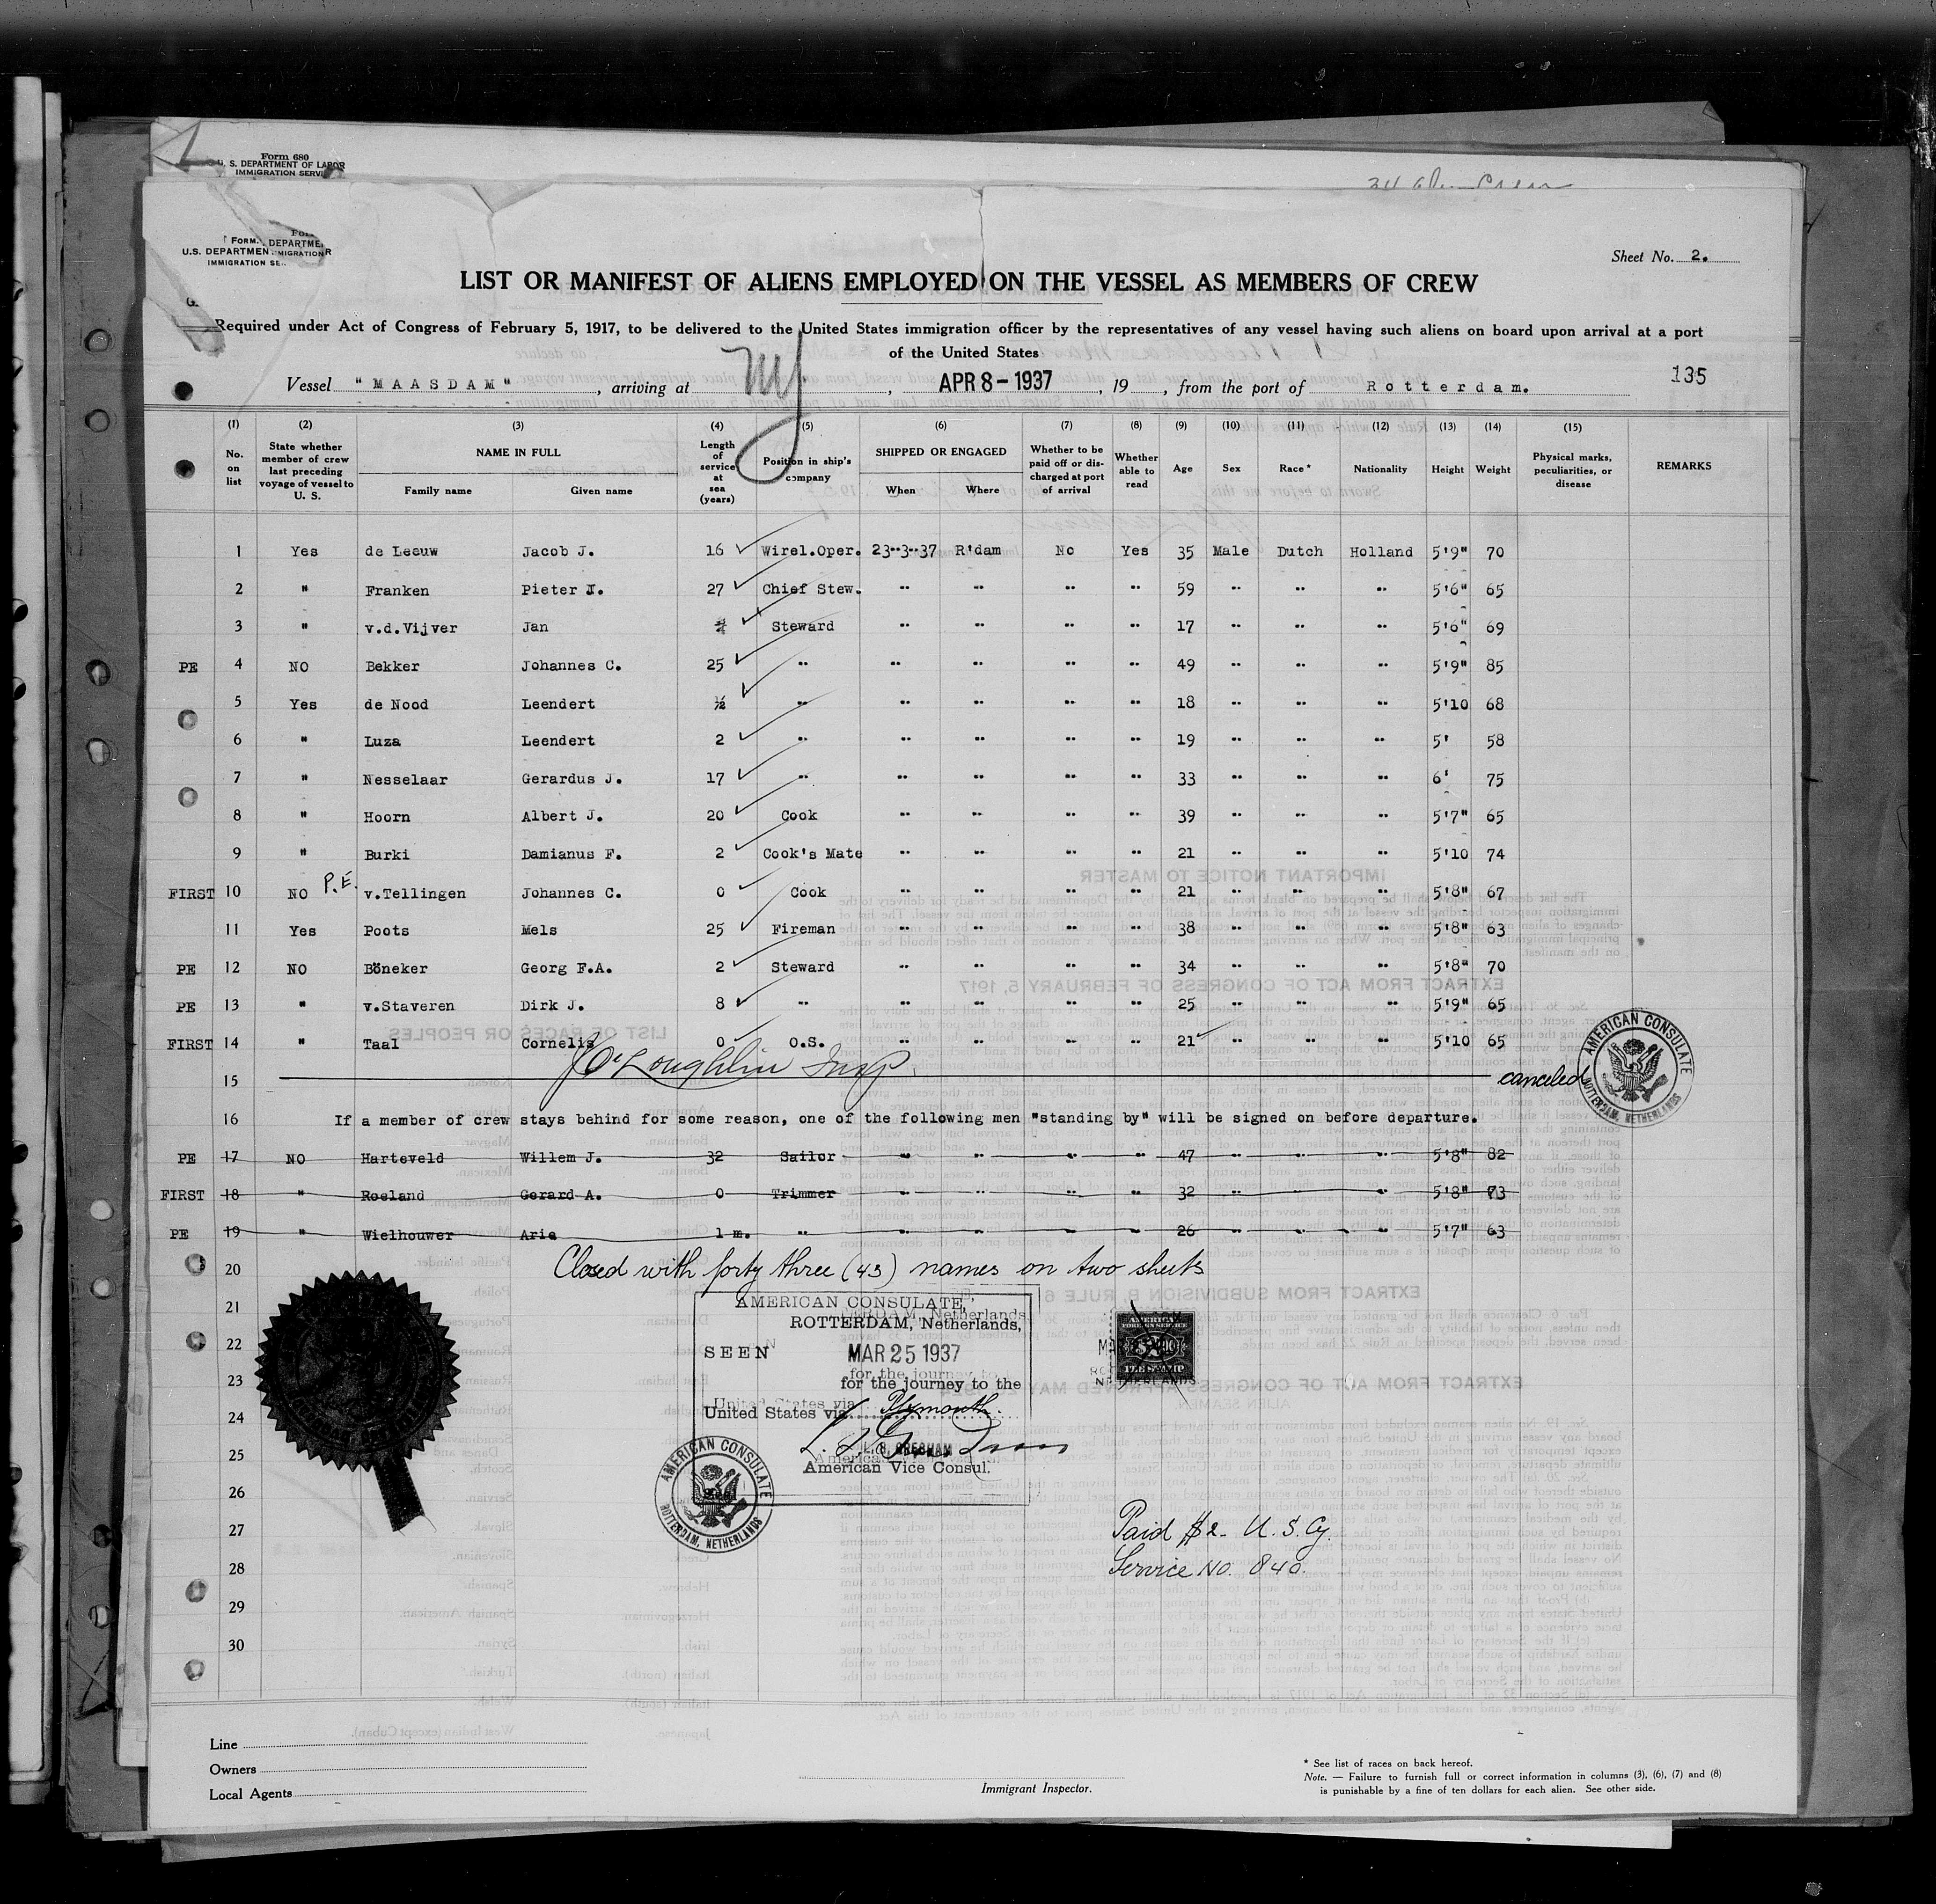 Form 680
U. S. DEPARTMENT OF LABOR
IMMIGRATION SERVI
FORM. DEPARTME
U.S. DEPARTMEN MIGRATION R
IMMIGRATION SE
Sheet No. 2.
LIST OR MANIFEST OF ALIENS EMPLOYED ON THE VESSEL AS MEMBERS OF CREW
Required under Act of Congress of February 5, 1917, to be delivered to the United States immigration officer by the representatives of any vessel having such aliens on board upon arrival at a port
of the United States
Vessel "MAASDAM", arriving at NY, APR 8 - 1937, 19 , from the port of Rotterdam. 135
(1) (2) (3) (4) (5) (6) (7) (8) (9) (10) (11) (12) (13) (14) (15)
No. on list State whether member of crew last preceding voyage of vessel to U. S. NAME IN FULL Family name Given name Length of service at sea (years) Position in ship's company SHIPPED OR ENGAGED When Where Whether to be paid off or discharged at port of arrival Whether able to read Age Sex Race * Nationality Height Weight Physical marks, peculiarities, or disease REMARKS
1 Yes de Leeuw Jacob J. 16 Wirel.Oper. 23-3-37 R'dam No Yes 35 Male Dutch Holland 5'9" 70
2 " Franken Pieter J. 27 Chief Stew. " " " " 59 " " " 5'6" 65
3 " v.d.Vijver Jan Steward " " " " 17 " " " 5'6" 69
PE 4 NO Bekker Johannes C. 25 " " " " " 49 " " " 5'9" 85
5 Yes de Nood Leendert ½ " " " " " 18 " " " 5'10 68
6 " Luza Leendert 2 " " " " " 19 " " " 5' 58
7 " Nesselaar Gerardus J. 17 " " " " " 33 " " " 6' 75
8 " Hoorn Albert J. 20 Cook " " " " 39 " " " 5'7" 65
9 " Burki Damianus F. 2 Cook's Mate " " " " 21 " " " 5'10 74
FIRST 10 NO P.E. v.Tellingen Johannes C. 0 Cook " " " " 21 " " " 5'8" 67
11 Yes Poots Mels 25 Fireman " " " " 38 " " " 5'8" 63
PE 12 NO Böneker Georg F.A. 2 Steward " " " " 34 " " " 5'8" 70
PE 13 " v.Staveren Dirk J. 8 " " " " " 25 " " " 5'9" 65
FIRST 14 " Taal Cornelis 0 O.S. " " " " 21 " " " 5'10 65
15 canceled
16 If a member of crew stays behind for some reason, one of the following men "standing by" will be signed on before departure.
PE 17 NO Harteveld Willem J. 32 Sailor " " " " 47 " " " 5'8" 82
FIRST 18 " Roeland Gerard A. 0 Trimmer " " " " 32 " " " 5'8" 73
PE 19 " Wielhouwer Arie 1 m. " " " " " 26 " " " 5'7" 63
20 Closed with forty three (43) names on two sheets
21
22
23
24
25
26
27
28
29
30
AMERICAN CONSULATE,
ROTTERDAM, Netherlands,
SEEN MAR 25 1937
for the journey to the
United States via Plymouth.
L. B. GRESHAM
American Vice Consul.
AMERICAN CONSULATE
ROTTERDAM, NETHERLANDS
AMERICAN CONSULATE
ROTTERDAM, NETHERLANDS
AMERICAN
FOREIGN SERVICE
FEE STAMP
NETHERLANDS
Paid $2- U. S. Cy.
Service No. 840.
Line
Owners
Local Agents
Immigrant Inspector.
* See list of races on back hereof.
Note. — Failure to furnish full or correct information in columns (3), (6), (7) and (8)
is punishable by a fine of ten dollars for each alien. See other side.